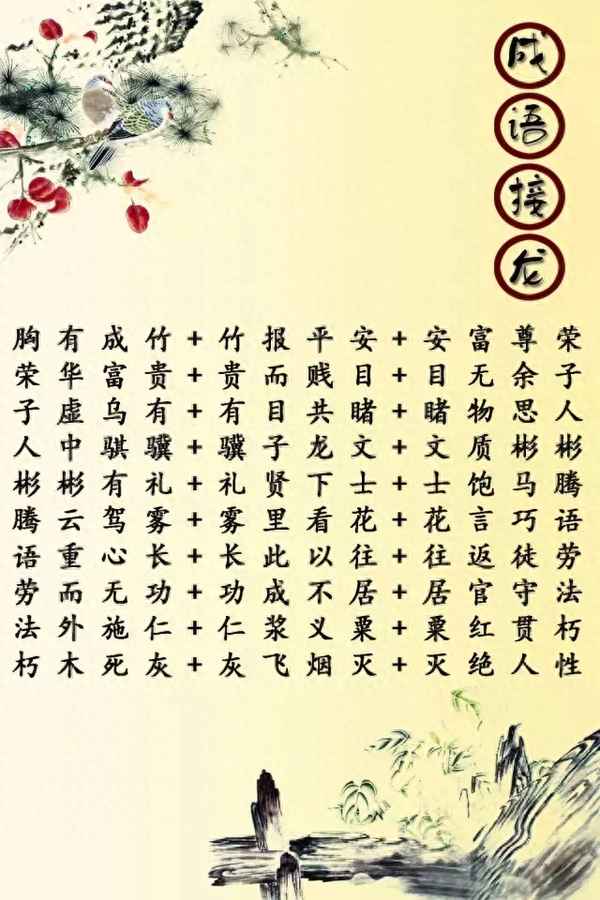 成语接龙
胸有成竹+竹报平安+安富尊荣
荣华富贵+贵而贱目+目无余子
子虚乌有+有目共睹+睹物思人
人中骐骥+骥子龙文+文质彬彬
彬彬有礼+礼贤下士+士饱马腾
腾云驾雾+雾里看花+花言巧语
语重心长+长此以往+往返徒劳
劳而无功+功成不居+居官守法
法外施仁+仁浆义粟+粟红贯朽
朽木死灰+灰飞烟灭+灭绝人性